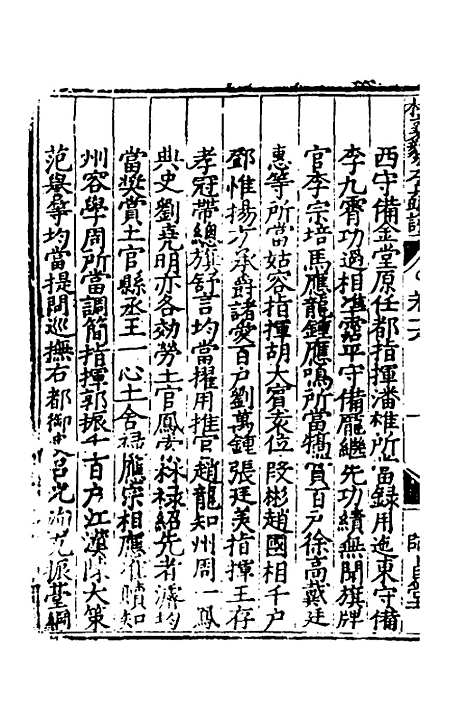 卷六
西守備金堂原任都指揮潘維所當錄用迤東守備
李九霄功過相準霑平守備龐繼先功績無聞旗牌
官李宗培馬應龍鍾應鳴所當犒賞百户徐高戴廷
惠等所當姑容指揮胡大賓袁位段彬趙國相千户
鄧惟揚方承爵諸愛百户劉萬鍾張廷美指揮王存
孝冠帶總旗舒言均當擢用推官趙龍知州周一鳳
典史劉堯明亦各効勞土官鳳 祿紹先者濬均
當奬賞土官縣丞王一心土舍祿應崇相應 知
州容學周所當調簡指揮郭振千百户江漢陳大策
范舉等均當提問巡撫右都御史呂光洵 振堂綱